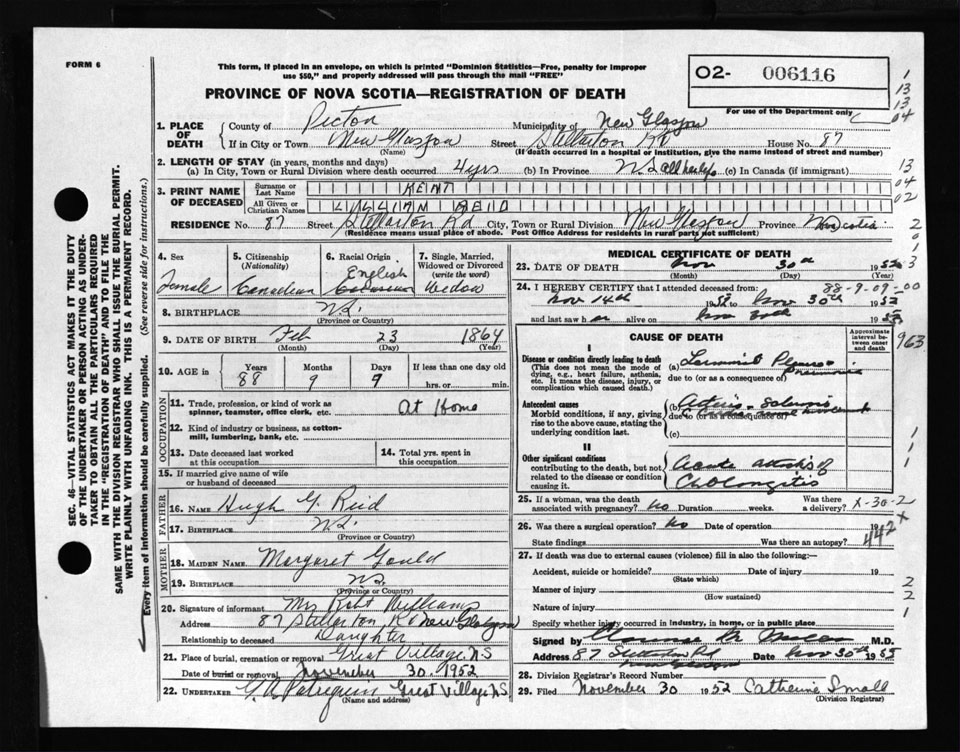 FORM 6
This form, if placed in an envelope, on which is printed "Dominion Statistics—Free, penalty for improper
use $50," and properly addressed will pass through the mail "FREE"
PROVINCE OF NOVA SCOTIA—REGISTRATION OF DEATH
02- 006116
For use of the Department only
1. PLACE OF DEATH
County of Pictou Municipality of New Glasgow
If in City or Town New Glasgow Street Stellarton Rd House No. 87
(Name) (If death occurred in a hospital or institution, give the name instead of street and number)
2. LENGTH OF STAY (in years, months and days)
(a) In City, Town or Rural Division where death occurred 4 yrs (b) In Province N.S. all her life (c) In Canada (if immigrant)
3. PRINT NAME OF DECEASED
Surname or Last Name KENT
All Given or Christian Names LILLIAN REID
RESIDENCE No. 87 Street Stellarton Rd City, Town or Rural Division New Glasgow Province Nova Scotia
(Residence means usual place of abode. Post Office Address for residents in rural parts not sufficient)
4. Sex
Female
5. Citizenship
(Nationality)
Canadian
6. Racial Origin
English
7. Single, Married,
Widowed or Divorced
(write the word)
Widow
8. BIRTHPLACE N.S.
(Province or Country)
9. DATE OF BIRTH Feb 23 1864
(Month) (Day) (Year)
10. AGE IN Years Months Days If less than one day old
88 9 9 hrs. or min.
OCCUPATION
11. Trade, profession, or kind of work as
spinner, teamster, office clerk, etc. At Home
12. Kind of industry or business, as cotton-
mill, lumbering, bank, etc.
13. Date deceased last worked
at this occupation
14. Total yrs. spent in
this occupation
15. If married give name of wife
or husband of deceased
FATHER
16. Name Hugh G. Reid
17. Birthplace N.S.
(Province or Country)
MOTHER
18. MAIDEN NAME Margaret Gould
19. BIRTHPLACE N.S.
(Province or Country)
20. Signature of informant Mrs Robt Williams
Address 87 Stellarton Rd New Glasgow
Relationship to deceased Daughter
21. Place of burial, cremation or removal Great Village, NS
Date of burial or removal November 30 1952
22. UNDERTAKER Great Village N.S.
(Name and address)
MEDICAL CERTIFICATE OF DEATH
23. DATE OF DEATH Nov 30th 1952
(Month) (Day) (Year)
24. I HEREBY CERTIFY that I attended deceased from: 88-9-09-00
Nov 14th 1952 to Nov 30th 1952
and last saw her alive on Nov 30th 1952
CAUSE OF DEATH
Approximate interval between onset and death
I
Disease or condition directly leading to death
(This does not mean the mode of
dying, e.g., heart failure, asthenia,
etc. It means the disease, injury, or
complication which caused death.)
(a) Pleuro-Pneumonia
due to (or as a consequence of)
Antecedent causes
Morbid conditions, if any, giving
rise to the above cause, stating the
underlying condition last.
(b) Arterio-Sclerosis
due to (or as a consequence of)
(c)
II
Other significant conditions
contributing to the death, but not
related to the disease or condition
causing it.
Acute attacks of
Cholangitis
25. If a woman, was the death
associated with pregnancy? No Duration weeks. Was there a delivery? X-30-2
26. Was there a surgical operation? No Date of operation 19
State findings Was there an autopsy? 442X
27. If death was due to external causes (violence) fill in also the following:—
Accident, suicide or homicide? Date of injury 19
(State which)
Manner of injury
(How sustained)
Nature of injury
Specify whether injury occurred in industry, in home, or in public place
Signed by M.D.
Address 87 Stellarton Rd Date Nov 30th 1952
New Glasgow
28. Division Registrar's Record Number
29. Filed November 30 1952 Catherine Small
(Division Registrar)
SEC. 46—VITAL STATISTICS ACT MAKES IT THE DUTY
OF THE UNDERTAKER OR PERSON ACTING AS UNDER-
TAKER TO OBTAIN ALL THE PARTICULARS REQUIRED
IN THE "REGISTRATION OF DEATH" AND TO FILE THE
SAME WITH THE DIVISION REGISTRAR WHO SHALL ISSUE THE BURIAL PERMIT.
WRITE PLAINLY WITH UNFADING INK. THIS IS A PERMANENT RECORD.
Every item of information should be carefully supplied. (See reverse side for instructions.)
1
13
13
04
13
04
02
2
0
1
3
963
1
1
1
2
2
1